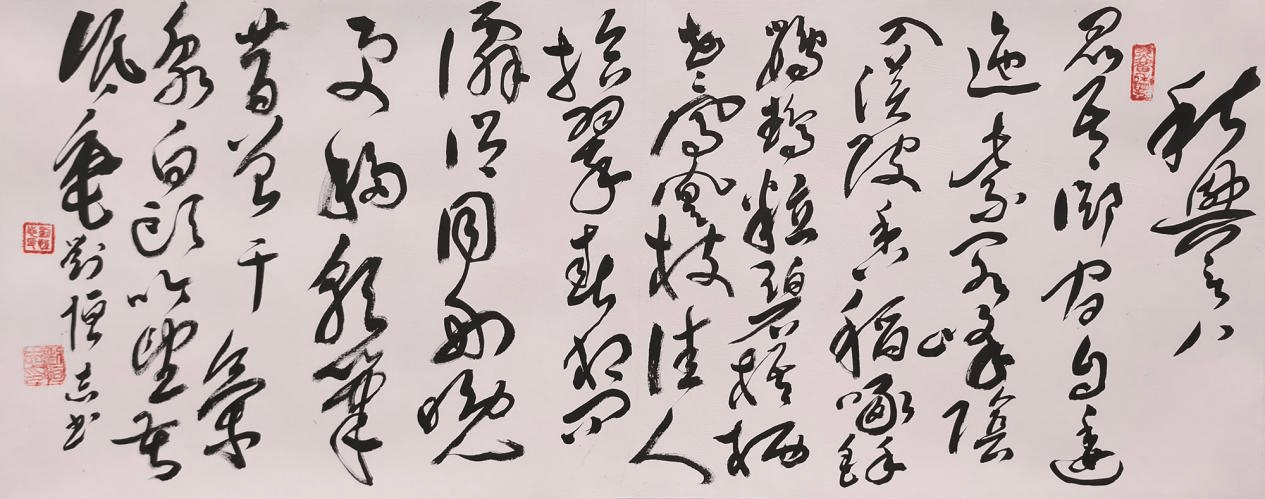 秋興之八
昆吾御宿自逶
迤紫閣峰陰
入渼陂香稻啄餘
鸚鵡粒碧梧栖
老鳳凰枝佳人
拾翠春相問
僊侣同舟晚
更移彩筆
昔曾干氣
象白頭吟望苦
低垂 劉恒志书